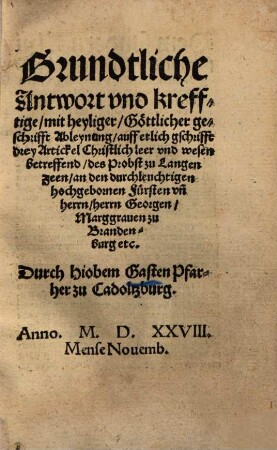 Grundtliche
Antwort vnd kreff-
tige/mit heyliger/Göttlicher ge-
schrifft Ableynung/auff etlich gschrifft
drey Artickel Christlich leer vnd wesen
betreffend/des Probst zu Langen
zeen/an den durchleuchtigen
hochgebornen Fürsten vn̄
herrn/herrn Georgen/
Marggrauen zu
Branden-
burg etc.
Durch Hiobem Gasten Pfar-
her zu Cadoltzburg.
Anno. M. D. XXVIII.
Mense Nouemb.